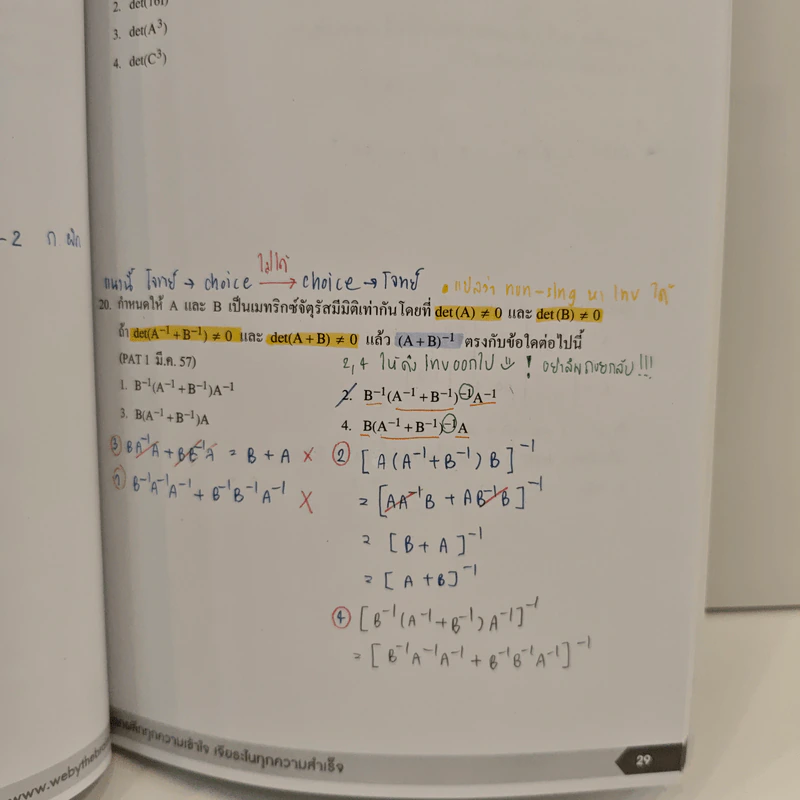 2. det(10I)
3. det(A³)
4. det(C³)
-2 ก ผิด
แนวนี้ โจทย์ → choice ไม่ได้ → choice → โจทย์
• แปลว่า non-sing หา inv ได้
20. กำหนดให้ A และ B เป็นเมทริกซ์จัตุรัสมีมิติเท่ากันโดยที่ det(A) ≠ 0 และ det(B) ≠ 0
ถ้า det(A⁻¹+B⁻¹) ≠ 0 และ det(A+B) ≠ 0 แล้ว (A+B)⁻¹ ตรงกับข้อใดต่อไปนี้
(PAT 1 มี.ค. 57)
2,4 ให้ดึง inv ออกไป ! อย่าลืมกลับ!!!
1. B⁻¹(A⁻¹+B⁻¹)A⁻¹
2. B⁻¹(A⁻¹+B⁻¹)⁻¹A⁻¹
3. B(A⁻¹+B⁻¹)A
4. B(A⁻¹+B⁻¹)⁻¹A
③ BA⁻¹A + BB⁻¹A = B + A ×
① B⁻¹A⁻¹A⁻¹ + B⁻¹B⁻¹A⁻¹ ×
② [A(A⁻¹+B⁻¹)B]⁻¹
= [AA⁻¹B + AB⁻¹B]⁻¹
= [B+A]⁻¹
= [A+B]⁻¹
④ [B⁻¹(A⁻¹+B⁻¹)A⁻¹]⁻¹
= [B⁻¹A⁻¹A⁻¹ + B⁻¹B⁻¹A⁻¹]⁻¹
ทุกความเข้าใจ เจียระไนทุกความสำเร็จ
www.webythebrain
29